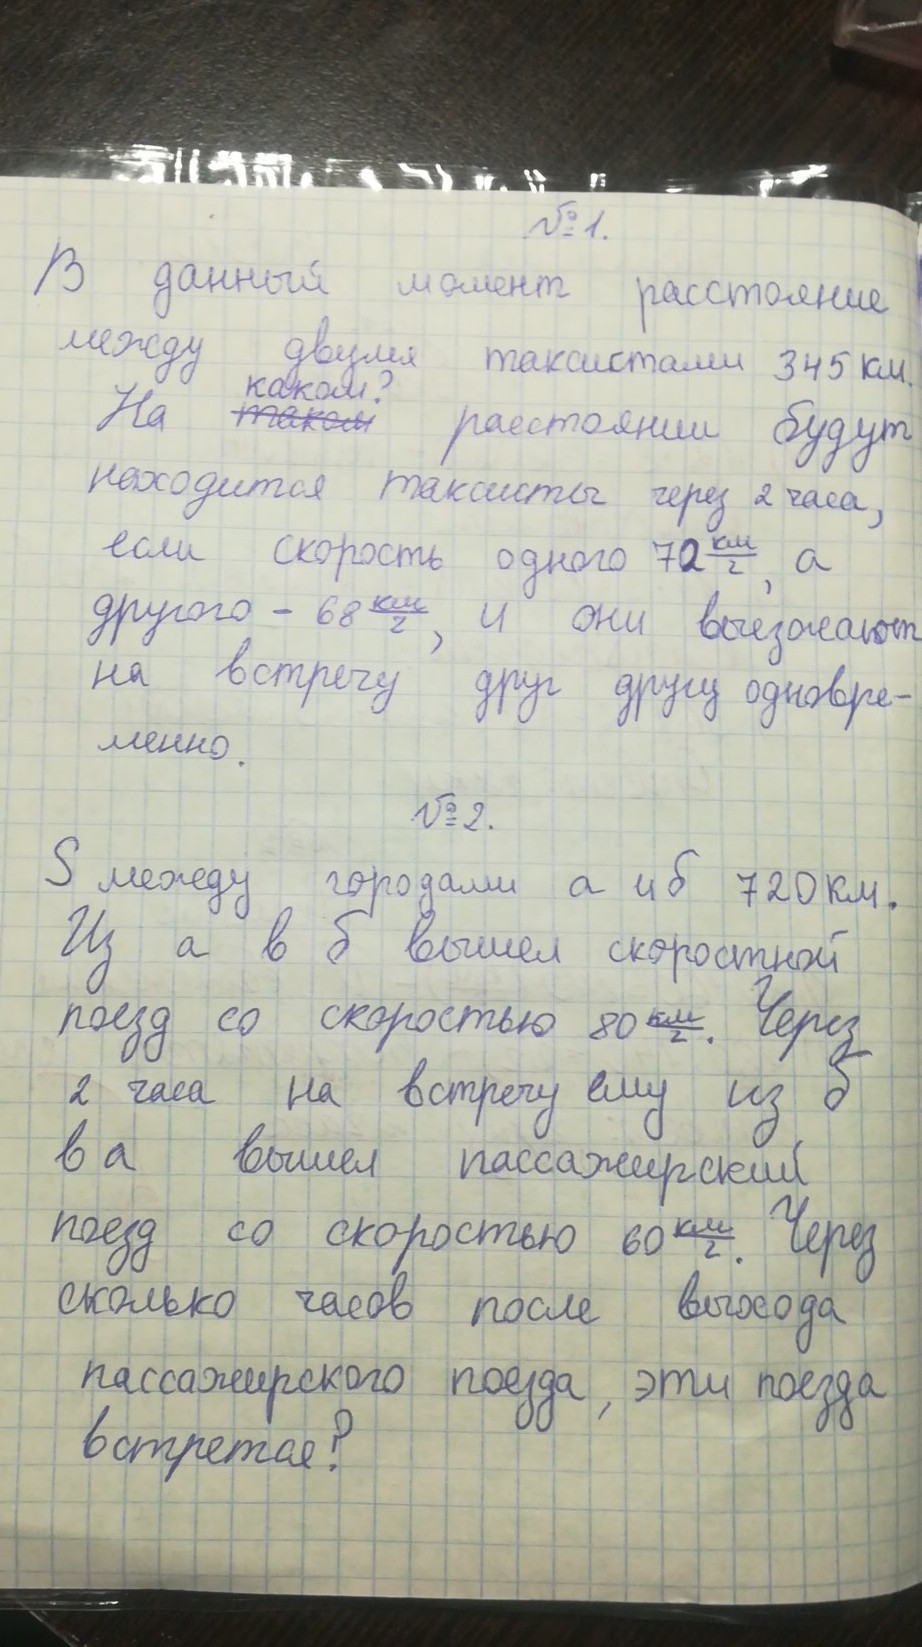 №1.
В данный момент расстояние
между двумя таксистами 345 км.
каком?
На таком расстоянии будут
находится таксисты через 2 часа,
если скорость одного 72 км/ч, а
другого - 68 км/ч, и они выезжают
на встречу друг другу одновре-
менно.
№2.
S между городами а и б 720 км.
Из а в б вышел скоростной
поезд со скоростью 80 км/ч. Через
2 часа на встречу ему из б
в а вышел пассажирский
поезд со скоростью 60 км/ч. Через
сколько часов после выхода
пассажирского поезда, эти поезда
встрется?